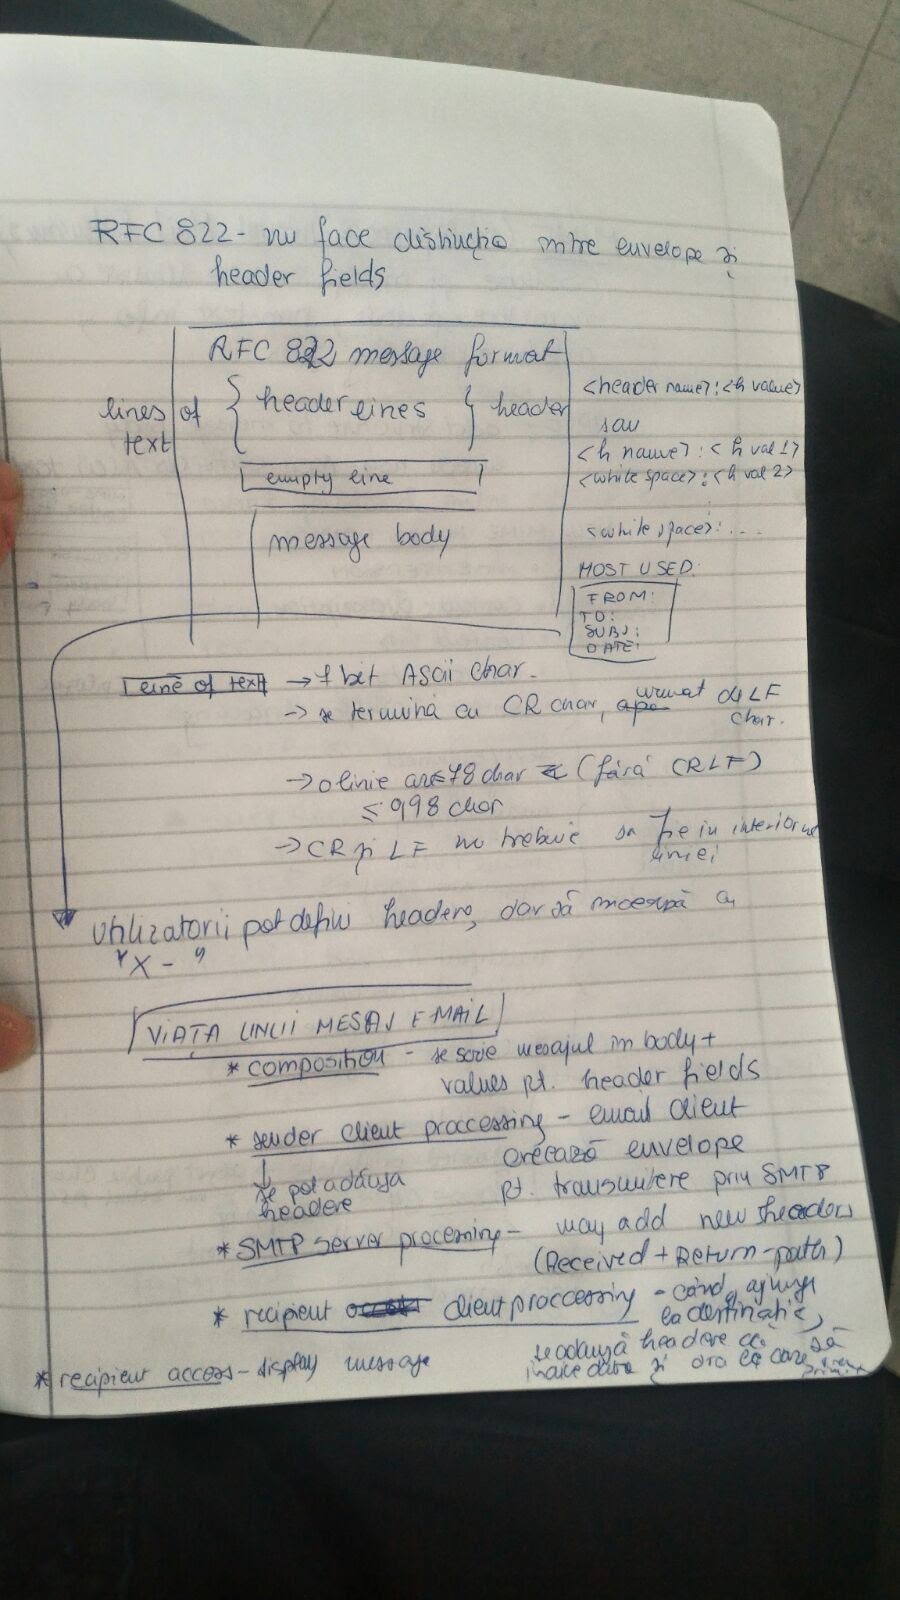 RFC 822 - nu face distincția între envelope și
header fields
RFC 822 message format
lines of
text
header lines
header
empty line
message body
<header name>:<h value>
sau
<h name>:<h val 1>
<white space>:<h val 2>
<white space>:...
MOST USED:
FROM:
TO:
SUBJ:
DATE:
line of text → 7 bit ASCII char.
→ se termină cu CR char, urmat de LF
char.
→ o linie are ≤ 78 char (fără CRLF)
≤ 998 char
→ CR și LF nu trebuie să fie în interiorul
liniei
Utilizatorii pot defini headere, dar să înceapă cu
"X - "
VIAȚA UNUI MESAJ EMAIL
* composition - se scrie mesajul în body +
values pt. header fields
* sender client proccessing - email client
crează envelope
pt. transmitere prin SMTP
↓
se pot adăuga
headere
* SMTP server processing - may add new headers
(Received + Return-path)
* recipient client proccessing - când ajunge
la destinație,
se adaugă headere ca să
data și ora la care
* recipient access - display message